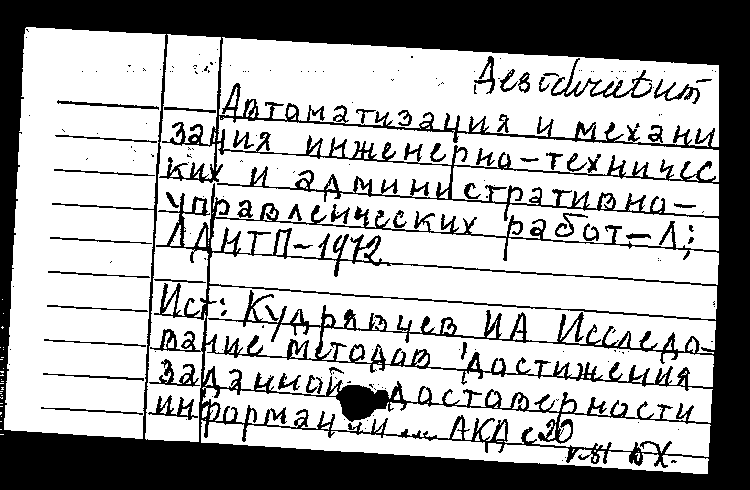 Автоматизация и механи
зация инженерно-техничес
ких и административно-
управленческих работ.-Л;
ЛДНТП-1972
Ист: Кудрявцев ИА Исследо-
вание методов достижения
заданной достоверности
информации ... АКД с20